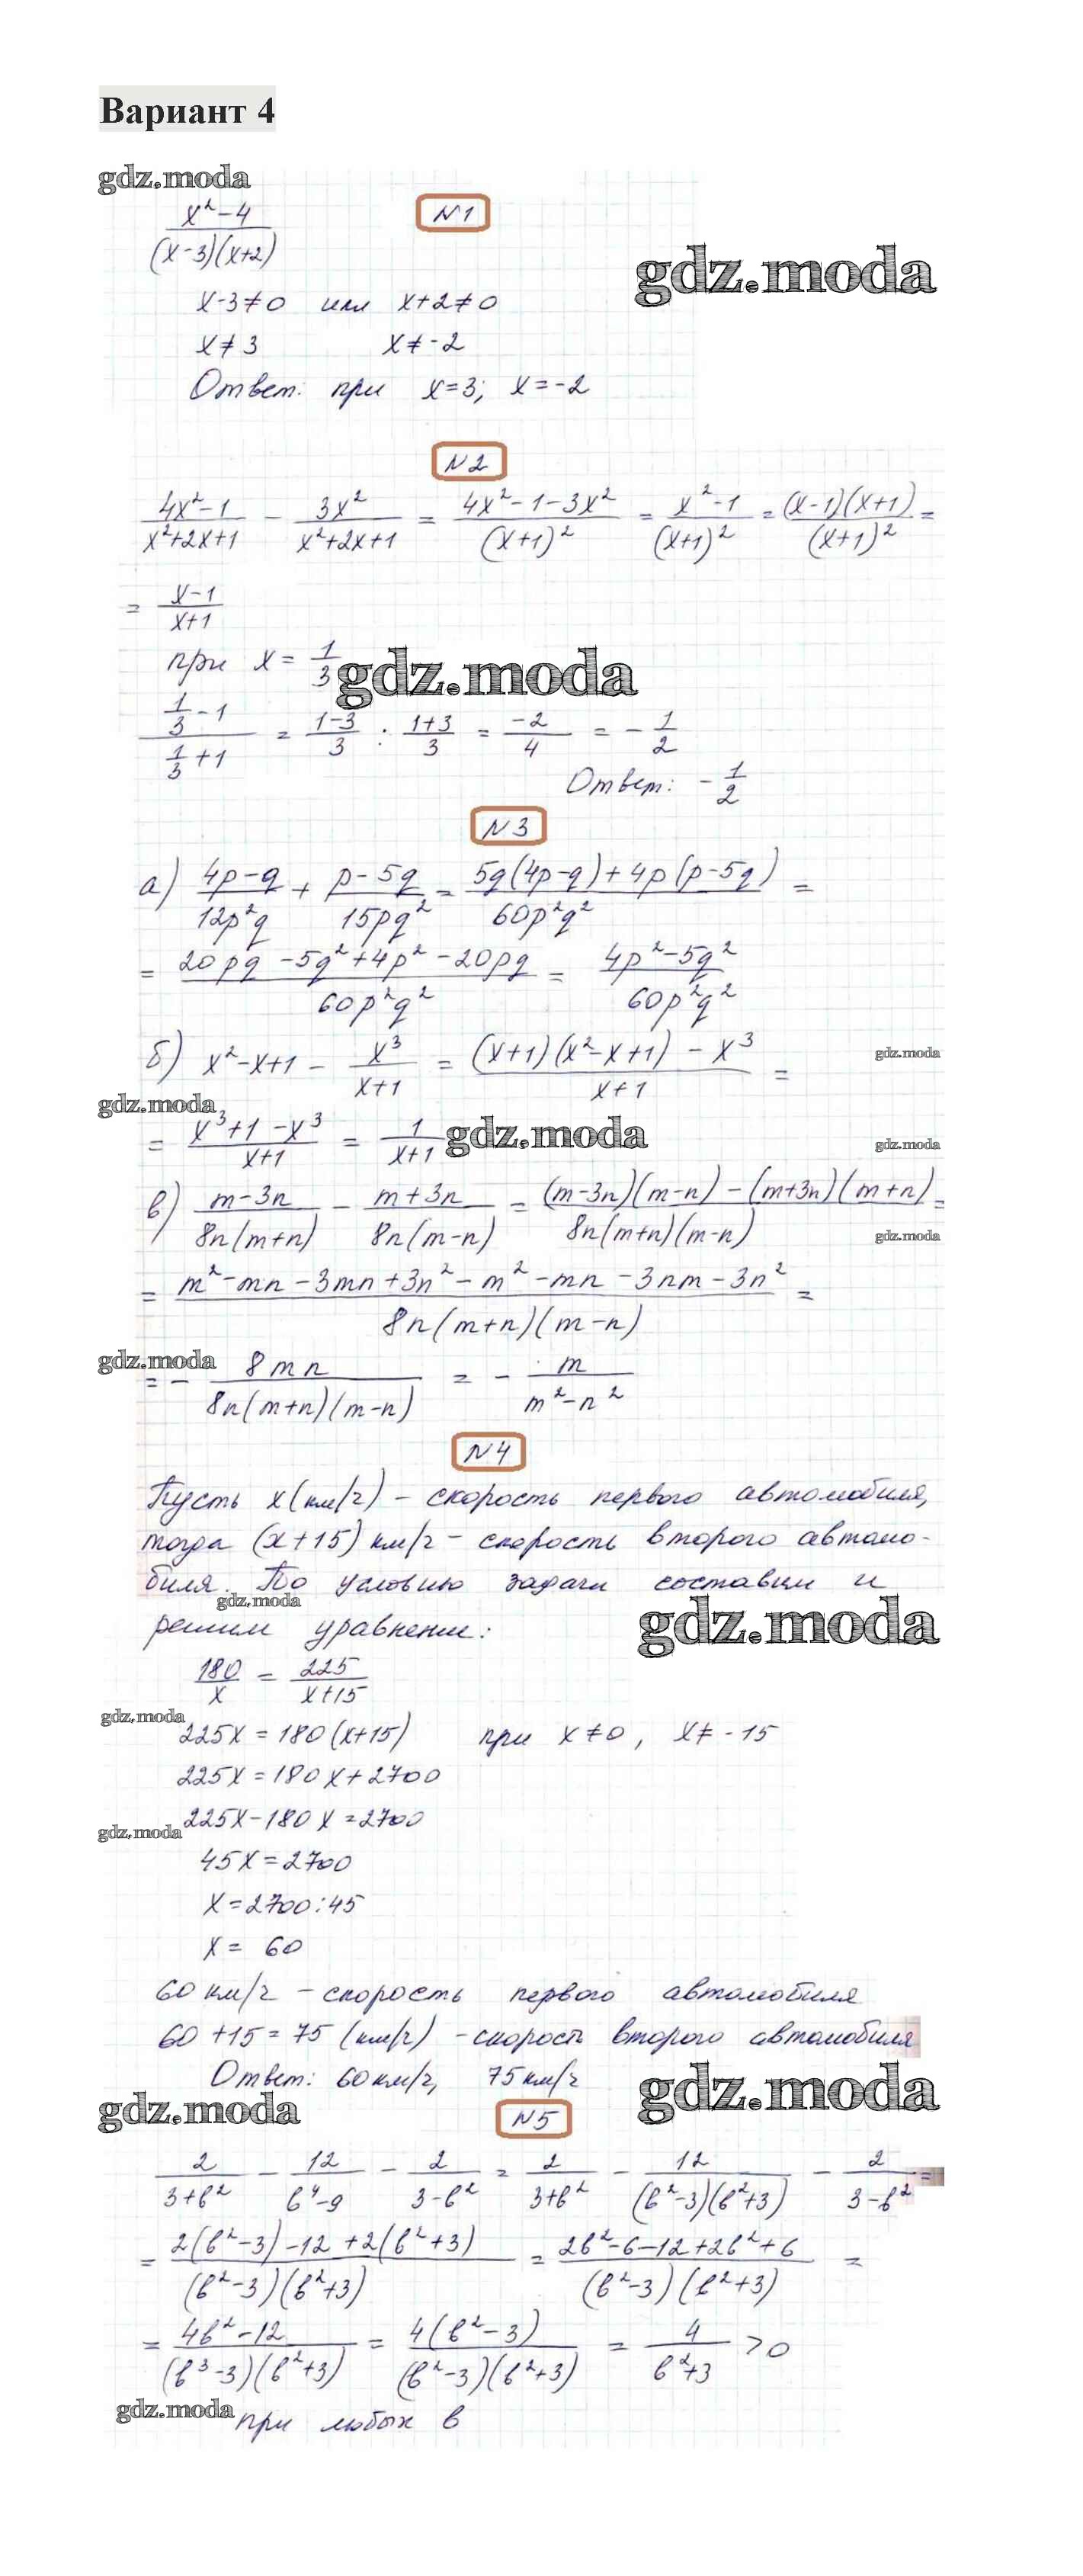 Вариант 4
gdz.moda
N1
(x²-4)/((x-3)(x+2))
gdz.moda
x-3≠0 или x+2≠0
x≠3 x≠-2
Ответ: при x=3; x=-2
N2
(4x²-1)/(x²+2x+1) - 3x²/(x²+2x+1) = (4x²-1-3x²)/(x+1)² = (x²-1)/(x+1)² = ((x-1)(x+1))/(x+1)² =
= (x-1)/(x+1)
при x = 1/3
gdz.moda
(1/3 - 1)/(1/3 + 1) = (1-3)/3 : (1+3)/3 = -2/4 = -1/2
Ответ: -1/2
N3
а) (4p-q)/(12p²q) + (p-5q)/(15pq²) = (5q(4p-q)+4p(p-5q))/(60p²q²) =
= (20pq-5q²+4p²-20pq)/(60p²q²) = (4p²-5q²)/(60p²q²)
б) x²-x+1 - x³/(x+1) = ((x+1)(x²-x+1)-x³)/(x+1) =
gdz.moda
gdz.moda
= (x³+1-x³)/(x+1) = 1/(x+1)
gdz.moda
gdz.moda
в) (m-3n)/(8n(m+n)) - (m+3n)/(8n(m-n)) = ((m-3n)(m-n)-(m+3n)(m+n))/(8n(m+n)(m-n)) =
gdz.moda
= (m²-mn-3mn+3n²-m²-mn-3nm-3n²)/(8n(m+n)(m-n)) =
gdz.moda
= - 8mn/(8n(m+n)(m-n)) = - m/(m²-n²)
N4
Пусть x(км/ч) - скорость первого автомобиля,
тогда (x+15) км/ч - скорость второго автомо-
биля. По условию задачи составим и
gdz.moda
gdz.moda
решим уравнение:
180/x = 225/(x+15)
gdz.moda
225x=180(x+15) при x≠0, x≠-15
225x=180x+2700
225x-180x=2700
gdz.moda
45x=2700
x=2700:45
x= 60
60 км/ч - скорость первого автомобиля
60+15=75 (км/ч) - скорость второго автомобиля
Ответ: 60км/ч, 75км/ч
gdz.moda
gdz.moda
N5
2/(3+b²) - 12/(b⁴-9) - 2/(3-b²) = 2/(3+b²) - 12/((b²-3)(b²+3)) - 2/(3-b²) =
= (2(b²-3)-12+2(b²+3))/((b²-3)(b²+3)) = (2b²-6-12+2b²+6)/((b²-3)(b²+3)) =
= (4b²-12)/((b³-3)(b²+3)) = (4(b²-3))/((b²-3)(b²+3)) = 4/(b²+3) >0
gdz.moda
при любых b